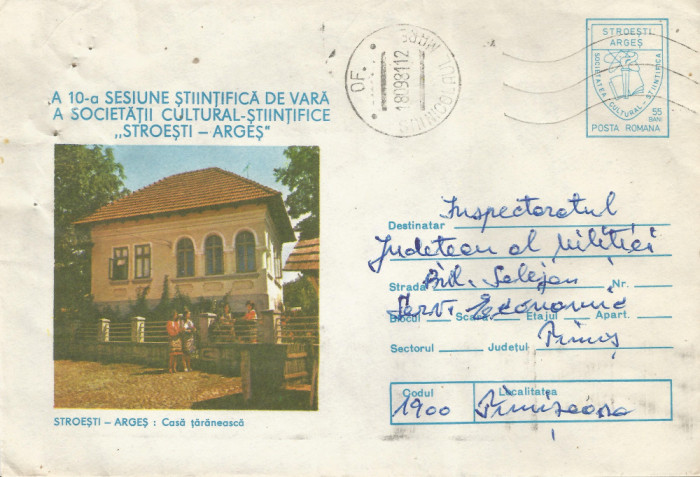 A 10-a SESIUNE ŞTIINŢIFICĂ DE VARĂ
A SOCIETĂŢII CULTURAL-ŞTIINŢIFICE
,,STROEŞTI – ARGEŞ"
OF.
18 09 81 12
STROEŞTI
ARGEŞ
SOCIETATEA CULTURAL-ŞTIINŢIFICĂ
55
BANI
POSTA ROMANA
Destinatar Inspectoratul
Judeţean al Miliţiei
Strada Bd. Salajan Nr.
Serv. Economic
Blocul Scara Etajul Apart.
Sectorul Judeţul Timiş
Codul Localitatea
1900 Timişoara
STROEŞTI – ARGEŞ : Casă ţărănească